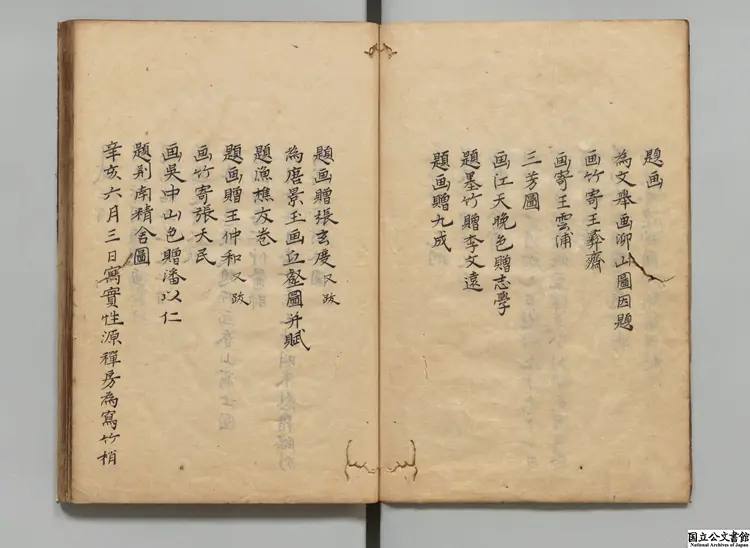 題画
為文舉画聊山圖因題
画竹寄王彝齋
画寄王雲浦
三芳圖
画江天晚色贈志學
題墨竹贈李文遠
題画贈九成
題画贈張玄度又跋
為唐景玉画丘壑圖并賦
題漁樵友卷
題画贈王仲和又跋
画竹寄張天民
画吳中山色贈潘以仁
題荆南精舍圖
辛亥六月三日寓實性源禪房為寫竹梢
国立公文書館
National Archives of Japan